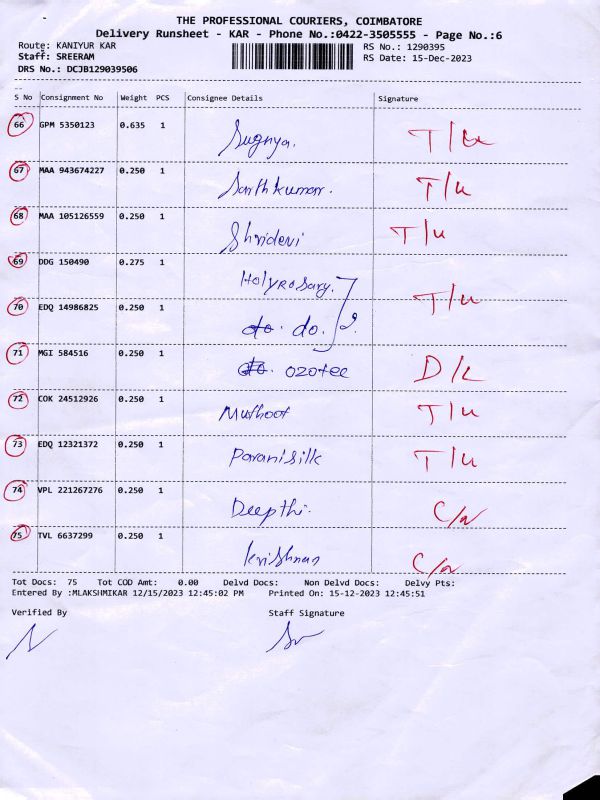 THE PROFESSIONAL COURIERS, COIMBATORE
Delivery Runsheet - KAR - Phone No.:0422-3505555 - Page No.:6
Route: KANIYUR KAR RS No.: 1290395
Staff: SREERAM RS Date: 15-Dec-2023
DRS No.: DCJB129039506
S No Consignment No Weight PCS Consignee Details Signature
66 GPM 5350123 0.635 1 Sugnya. T/u
67 MAA 943674227 0.250 1 Santhkumar. T/u
68 MAA 105126559 0.250 1 Shridevi T/u
69 DDG 150490 0.275 1 Holyrosary. T/u
70 EDQ 14986825 0.250 1 do. do.
71 MGI 584516 0.250 1 do. ozotec D/L
72 COK 24512926 0.250 1 Muthoot T/u
73 EDQ 12321372 0.250 1 Paranisilk T/u
74 VPL 221267276 0.250 1 Deepthi. C/n
75 TVL 6637299 0.250 1 krishnan C/n
Tot Docs: 75 Tot COD Amt: 0.00 Delvd Docs: Non Delvd Docs: Delvy Pts:
Entered By :MLAKSHMIKAR 12/15/2023 12:45:02 PM Printed On: 15-12-2023 12:45:51
Verified By Staff Signature